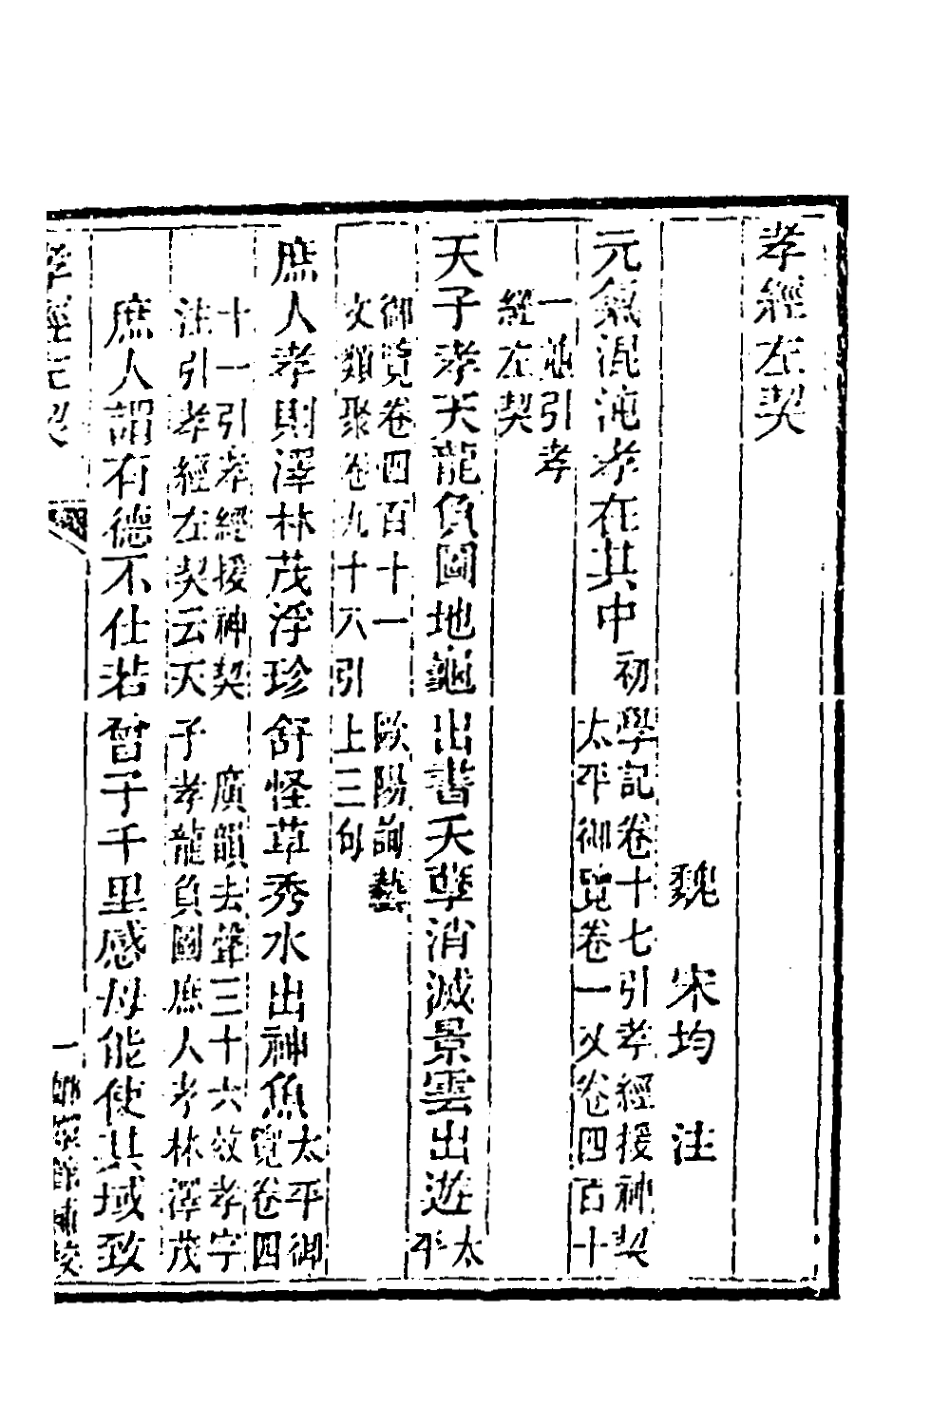 孝經左契
魏　宋均　注
元氣混沌孝在其中
初學記卷十七引孝經援神契
太平御覽卷一又卷四百十
一並引孝
經左契
天子孝天龍負圖地龜出書天孽消滅景雲出遊
太
平
御覽卷四百十一　歐陽詢藝
文類聚卷九十八引上三句
庶人孝則澤林茂浮珍舒怪草秀水出神魚
太平御
覽卷四
十一引孝經援神契　廣韻去聲三十六效孝字
注引孝經左契云天子孝龍負圖庶人孝林澤茂
庶人謂有德不仕若曾子千里感母能使其域致
孝經左契　一　嫏嬛館補校